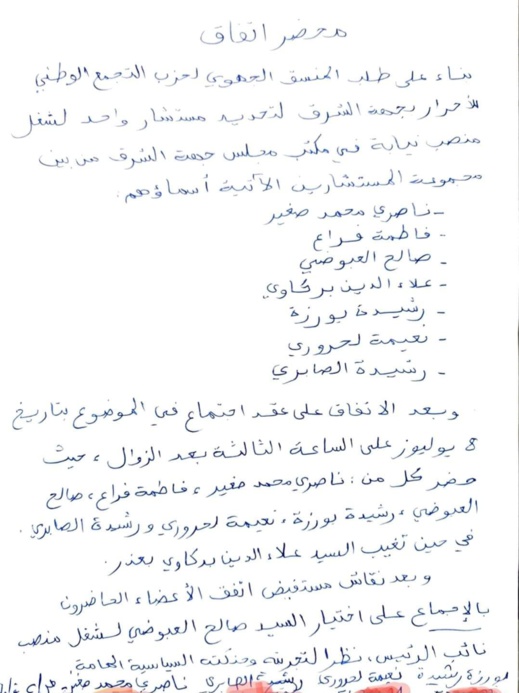 محضر اتفاق
بناء على طلب المنسق الجهوي لحزب التجمع الوطني
للأحرار بجهة الشرق لتحديد مستشار واحد لشغل
منصب نيابة في مكتب مجلس جهة الشرق من بين
مجموعة المستشارين الآتية أسماؤهم:
- ناصري محمد صغير
- فاطمة فراع
- صالح العبوضي
- علاء الدين بركاوي
- رشيدة بورزة
- نعيمة لحروري
- رشيدة الصابري
وبعد الاتفاق على عقد اجتماع في الموضوع بتاريخ
8 يوليوز على الساعة الثالثة بعد الزوال، حيث
حضر كل من: ناصري محمد صغير، فاطمة فراع، صالح
العبوضي، رشيدة بورزة، نعيمة لحروري ورشيدة الصابري.
في حين تغيب السيد علاء الدين بركاوي بعذر.
وبعد نقاش مستفيض اتفق الأعضاء الحاضرون
بالإجماع على اختيار السيد صالح العبوضي لشغل منصب
نائب الرئيس، نظرا لتجربته وحنكته السياسية العامة.
بورزة رشيدة نعيمة لحروري رشيدة الصابري ناصري محمد صغير فراع